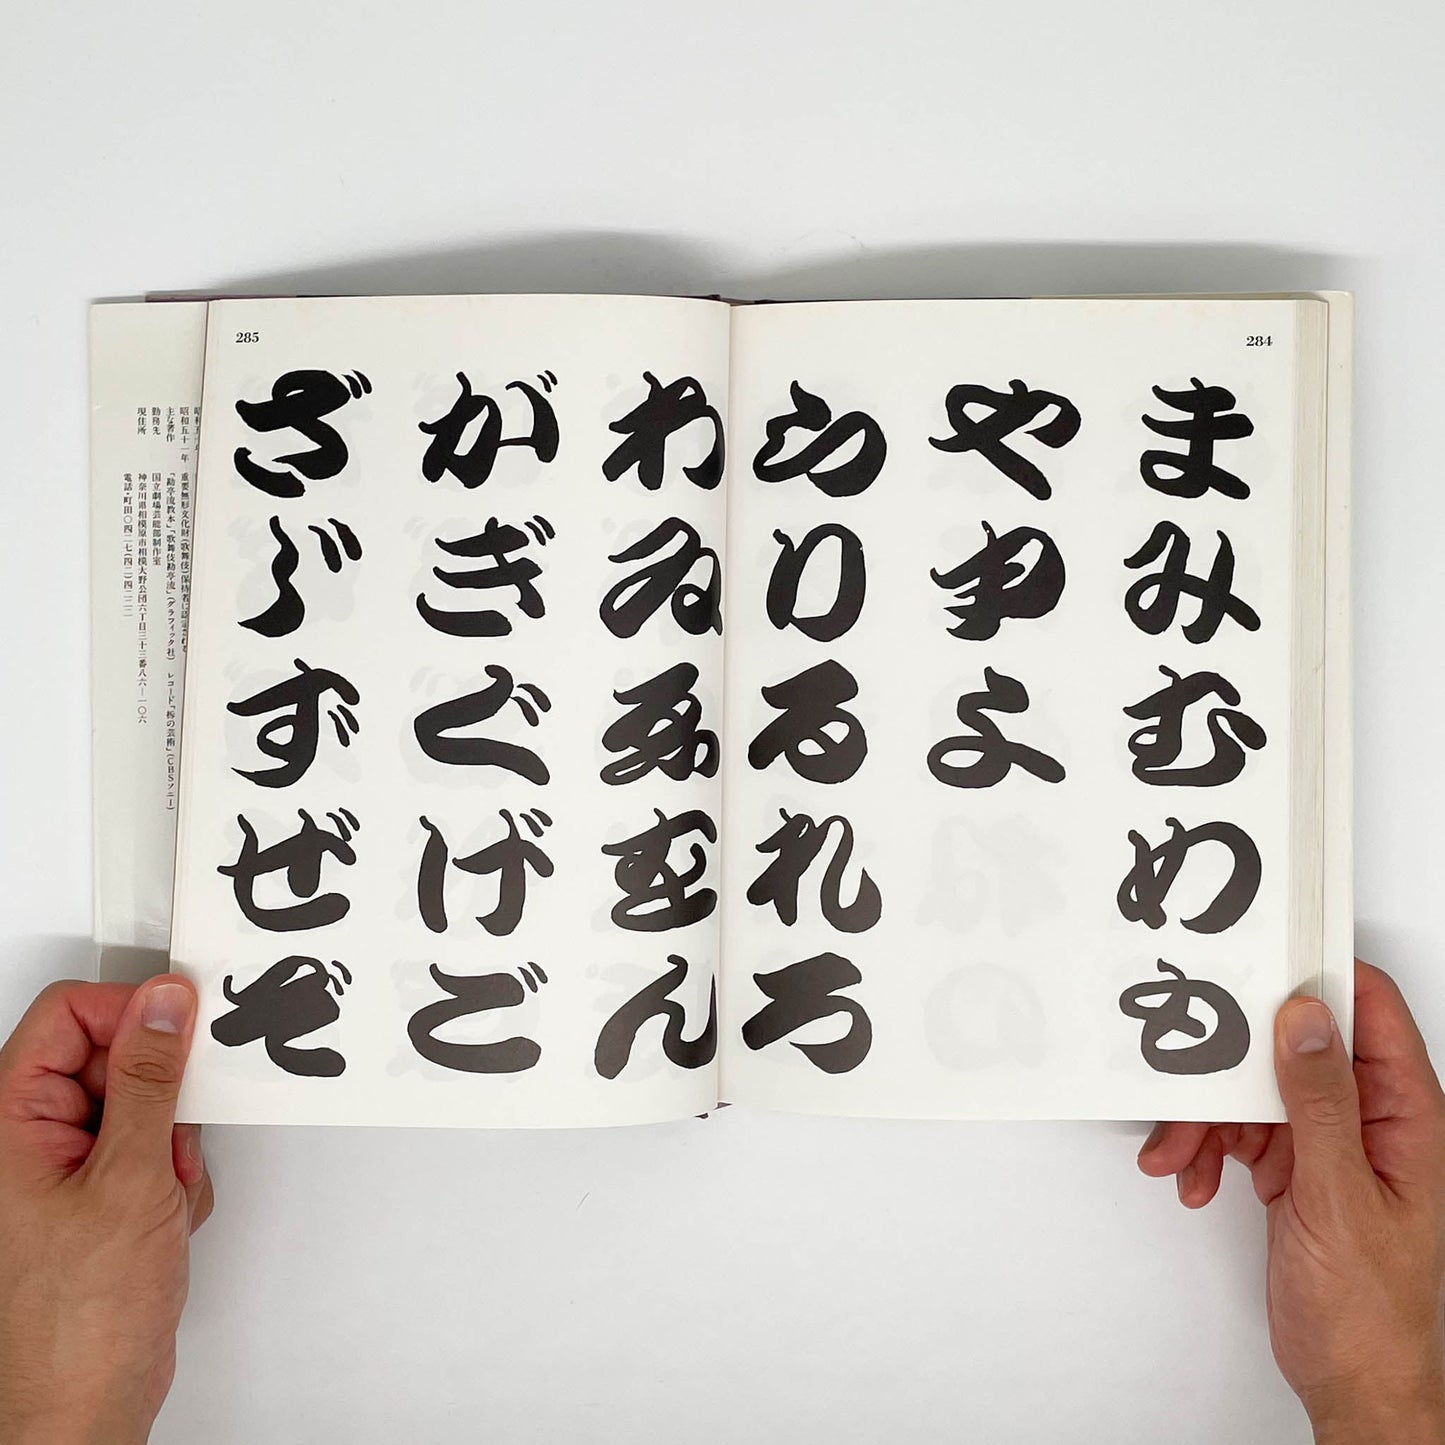 284
まみむめも
やゆよ
らりるれろ
285
わゐゑをん
がぎぐげご
ざじずぜぞ
昭和五十一年 重要無形文化財(歌舞伎)保持者に認定される
主な著作 「勘亭流教本」「歌舞伎勘亭流」(グラフィック社) レコード「柝の芸術」(CBSソニー)
勤務先 国立劇場芸能部制作室
現住所 神奈川県相模原市相模大野公団六丁目三十三番八六—一〇六
電話・町田〇四二七(四二)四二二二